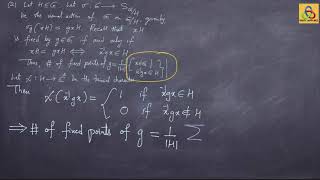 (2) Let H ≤ G. Let σ: G → S_{G/H}
be the usual action of G on G/H, given by
σ_g(xH) = gxH. Recall that xH
is fixed by g∈G if and only if
xH = gxH ⟺ x⁻¹gx ∈ H
Then, # of fixed points of g = 1/|H| |{x∈G | x⁻¹gx∈H}|
Let 𝟙: H → ℂ be the trivial character
Then 𝟙(x⁻¹gx) = { 1 if x⁻¹gx ∈ H
0 if x⁻¹gx ∉ H
⟹ # of fixed points of g = 1/|H| Σ